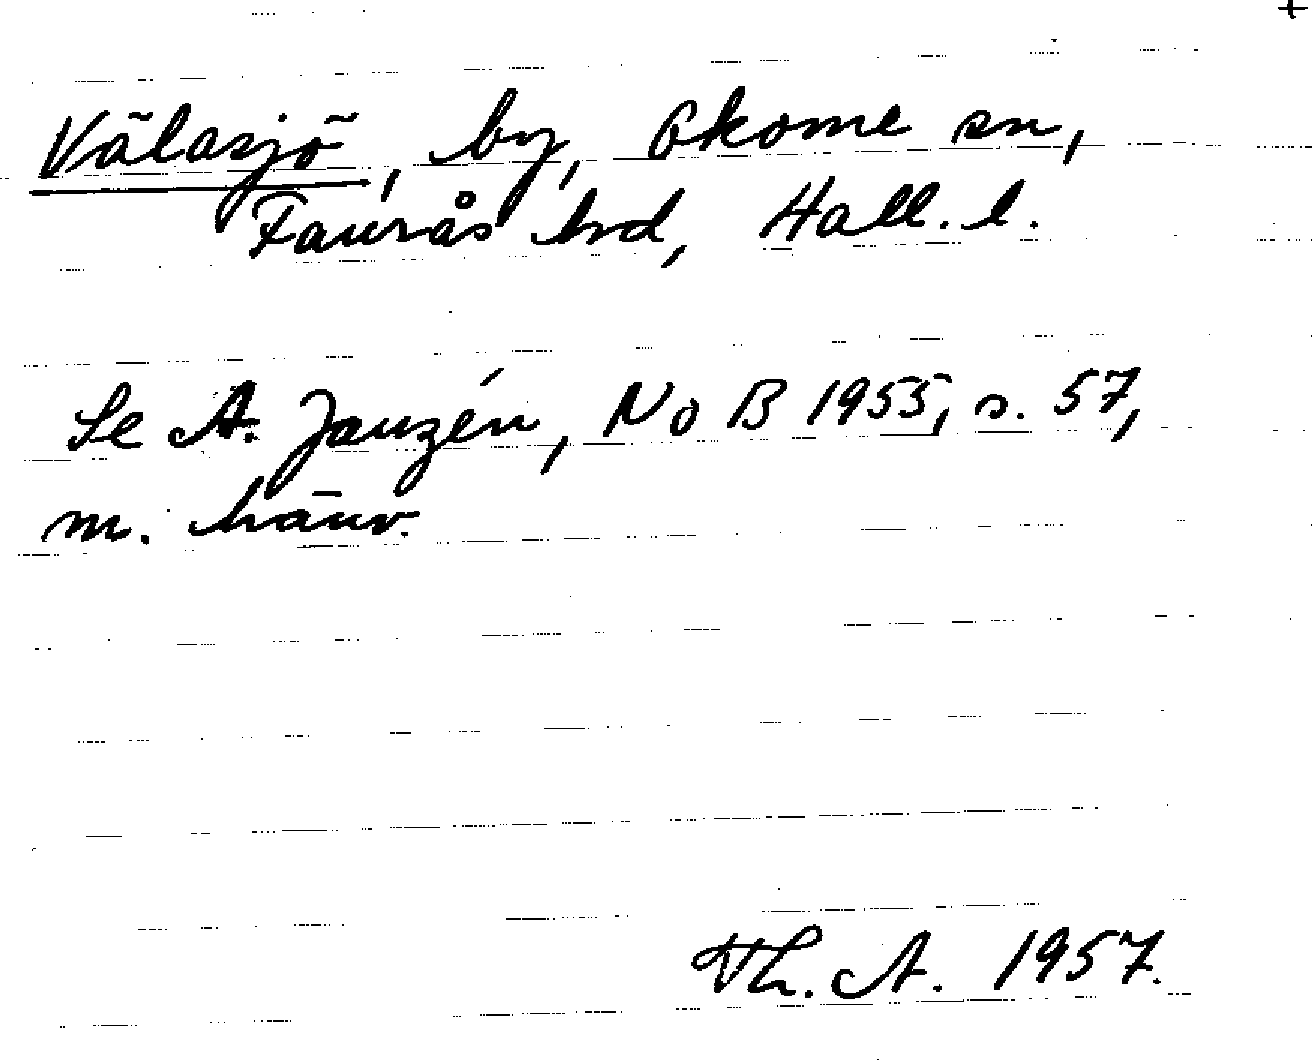 +
Välasjö, by, Okome sn,
Faurås hd, Hall. l.
Se A. Janzén, NoB 1955, s. 57,
m. hänv.
Th. A. 1957.